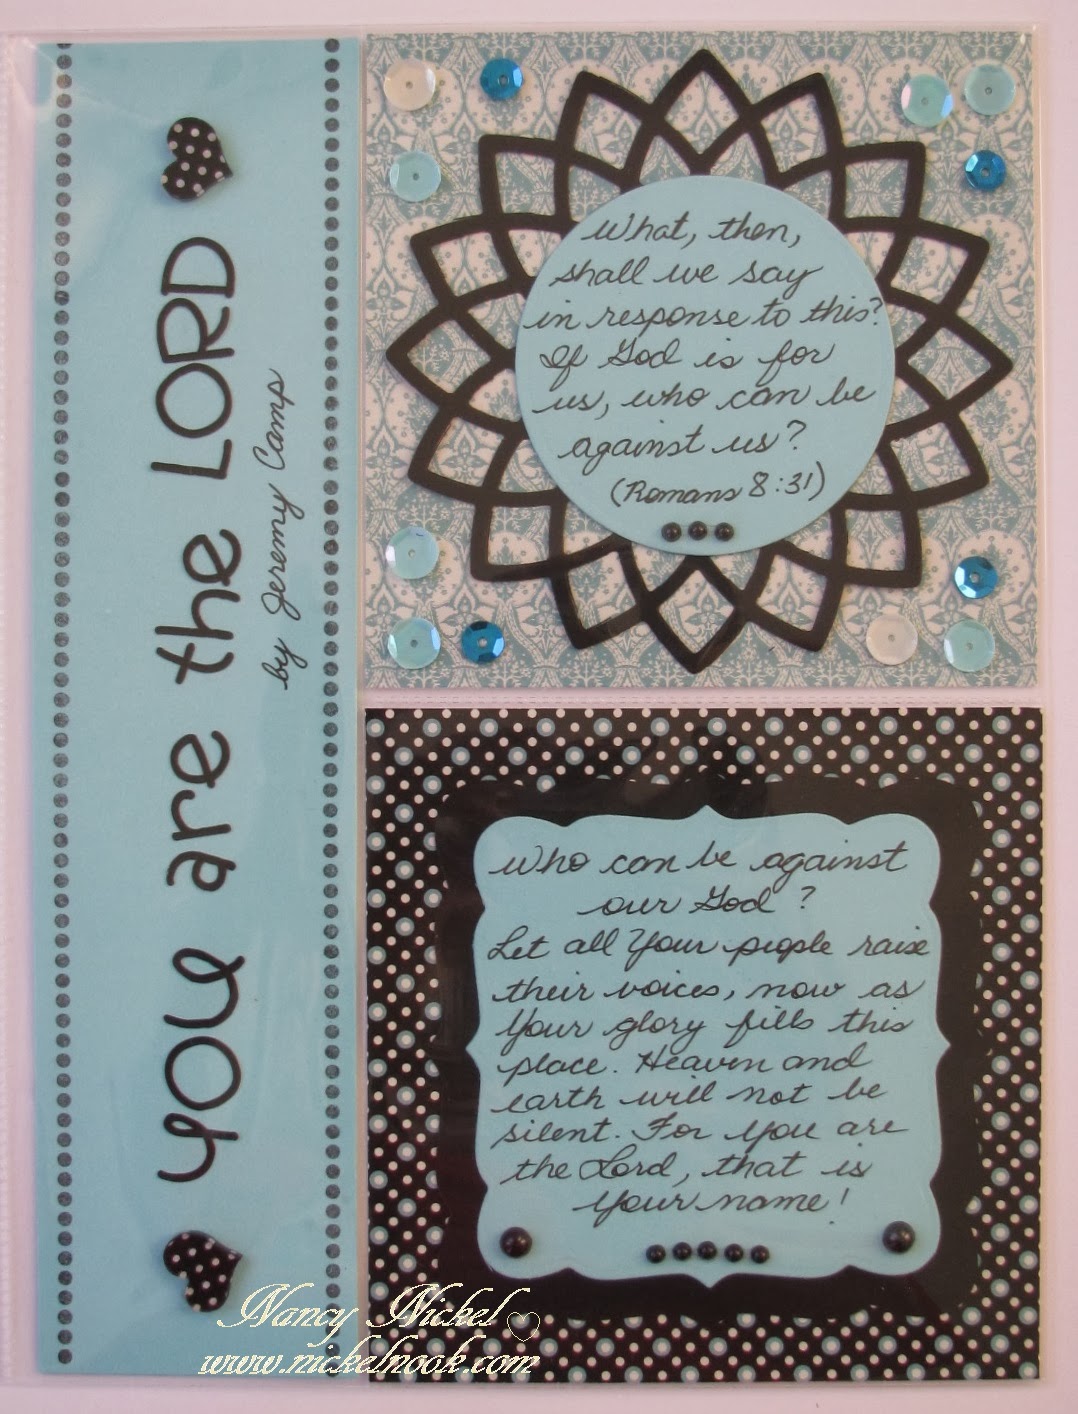 you are the LORD
by Jeremy Camp
What, then,
shall we say
in response to this?
If God is for
us, who can be
against us?
(Romans 8:31)
Who can be against
our God?
Let all Your people raise
their voices, now as
Your glory fills this
place. Heaven and
earth will not be
silent. For You are
the Lord, that is
Your name!
Nancy Nickel ♡
www.nickelnook.com